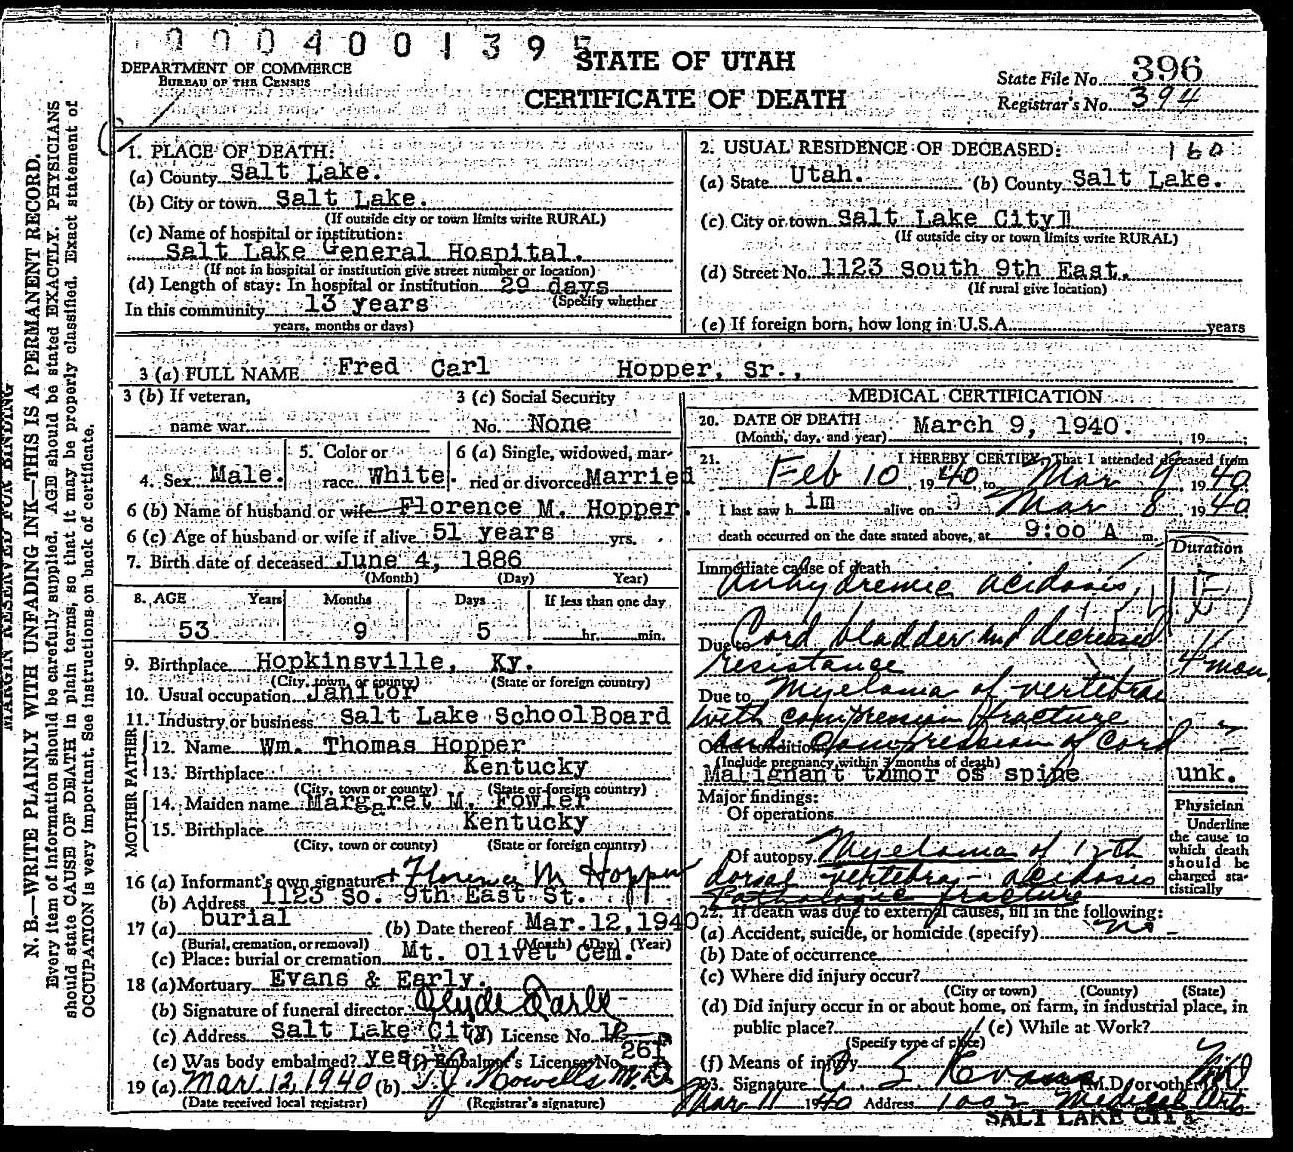 0004001395
STATE OF UTAH
DEPARTMENT OF COMMERCE
BUREAU OF THE CENSUS
CERTIFICATE OF DEATH
State File No. 396
Registrar's No. 394
MARGIN RESERVED FOR BINDING
N. B.—WRITE PLAINLY WITH UNFADING INK—THIS IS A PERMANENT RECORD.
Every item of information should be carefully supplied. AGE should be stated EXACTLY. PHYSICIANS
should state CAUSE OF DEATH in plain terms, so that it may be properly classified. Exact statement of
OCCUPATION is very important. See instructions on back of certificate.
1. PLACE OF DEATH:
(a) County Salt Lake.
(b) City or town Salt Lake.
(If outside city or town limits write RURAL)
(c) Name of hospital or institution:
Salt Lake General Hospital.
(If not in hospital or institution give street number or location)
(d) Length of stay: In hospital or institution 29 days
(Specify whether
In this community 13 years
years, months or days)
2. USUAL RESIDENCE OF DECEASED: 160
(a) State Utah. (b) County Salt Lake.
(c) City or town Salt Lake City
(If outside city or town limits write RURAL)
(d) Street No. 1123 South 9th East.
(If rural give location)
(e) If foreign born, how long in U.S.A. years
3 (a) FULL NAME Fred Carl Hopper, Sr.,
3 (b) If veteran, 3 (c) Social Security
name war No. None
4. Sex Male. 5. Color or race White. 6 (a) Single, widowed, married or divorced Married
6 (b) Name of husband or wife Florence M. Hopper.
6 (c) Age of husband or wife if alive 51 years yrs.
7. Birth date of deceased June 4, 1886
(Month) (Day) Year)
8. AGE Years Months Days If less than one day
53 9 5 hr. min.
9. Birthplace Hopkinsville, Ky.
(City, town, or county) (State or foreign country)
10. Usual occupation Janitor
11. Industry or business Salt Lake School Board
FATHER
12. Name Wm. Thomas Hopper
13. Birthplace Kentucky
(City, town or county) (State or foreign country)
MOTHER
14. Maiden name Margaret M. Fowler
15. Birthplace Kentucky
(City, town or county) (State or foreign country)
16 (a) Informant's own signature Florence M Hopper
(b) Address 1123 So. 9th East St.
17 (a) burial (b) Date thereof Mar.12,1940
(Burial, cremation, or removal) (Month) (Day) (Year)
(c) Place: burial or cremation Mt. Olivet Cem.
18 (a) Mortuary Evans & Early.
(b) Signature of funeral director Clyde Earle
(c) Address Salt Lake City (d) License No.
(e) Was body embalmed? yes (f) Embalmer's License No. 261
19 (a) Mar. 12, 1940 (b) T.J. Howells M.D.
(Date received local registrar) (Registrar's signature)
MEDICAL CERTIFICATION
20. DATE OF DEATH March 9, 1940. , 19
(Month, day, and year)
21. I HEREBY CERTIFY, That I attended deceased from
Feb 10 , 1940, to Mar 9 1940
I last saw h im alive on Mar 8 1940
death occurred on the date stated above, at 9:00 A m.
Duration
Immediate cause of death
Anhydremic acidosis,
Due to Cord bladder and decreased
resistance 4 mon.
Due to Myeloma of vertebrae
with compression fracture
Other conditions and compression of cord
(Include pregnancy within 3 months of death)
Malignant tumor os spine unk.
Major findings:
Of operations
Of autopsy Myeloma of 12th
dorsal vertebrae - acidosis
Pathologic fracture
Physician
Underline
the cause to
which death
should be
charged sta-
tistically
22. If death was due to external causes, fill in the following:
(a) Accident, suicide, or homicide (specify) no
(b) Date of occurrence
(c) Where did injury occur?
(City or town) (County) (State)
(d) Did injury occur in or about home, on farm, in industrial place, in
public place? (e) While at Work?
(Specify type of place)
(f) Means of injury
23. Signature C L Evans (M.D. or other) MD
Mar 11 1940 Address 1002 Medical Arts
SALT LAKE CITY